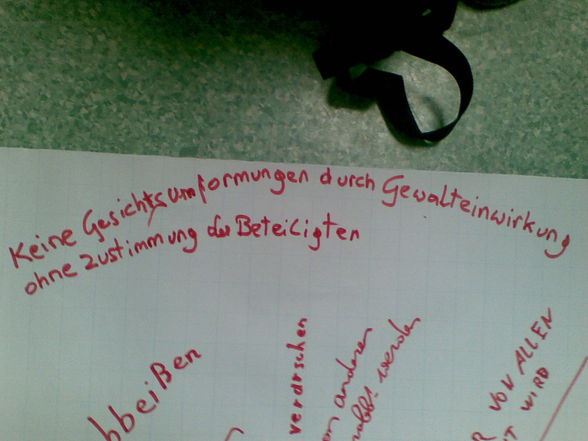 Keine Gesichtsumformungen durch Gewalteinwirkung
ohne Zustimmung der Beteiligten
bbeißen
verdreschen
anderen
werden
VON ALLEN
WIRD